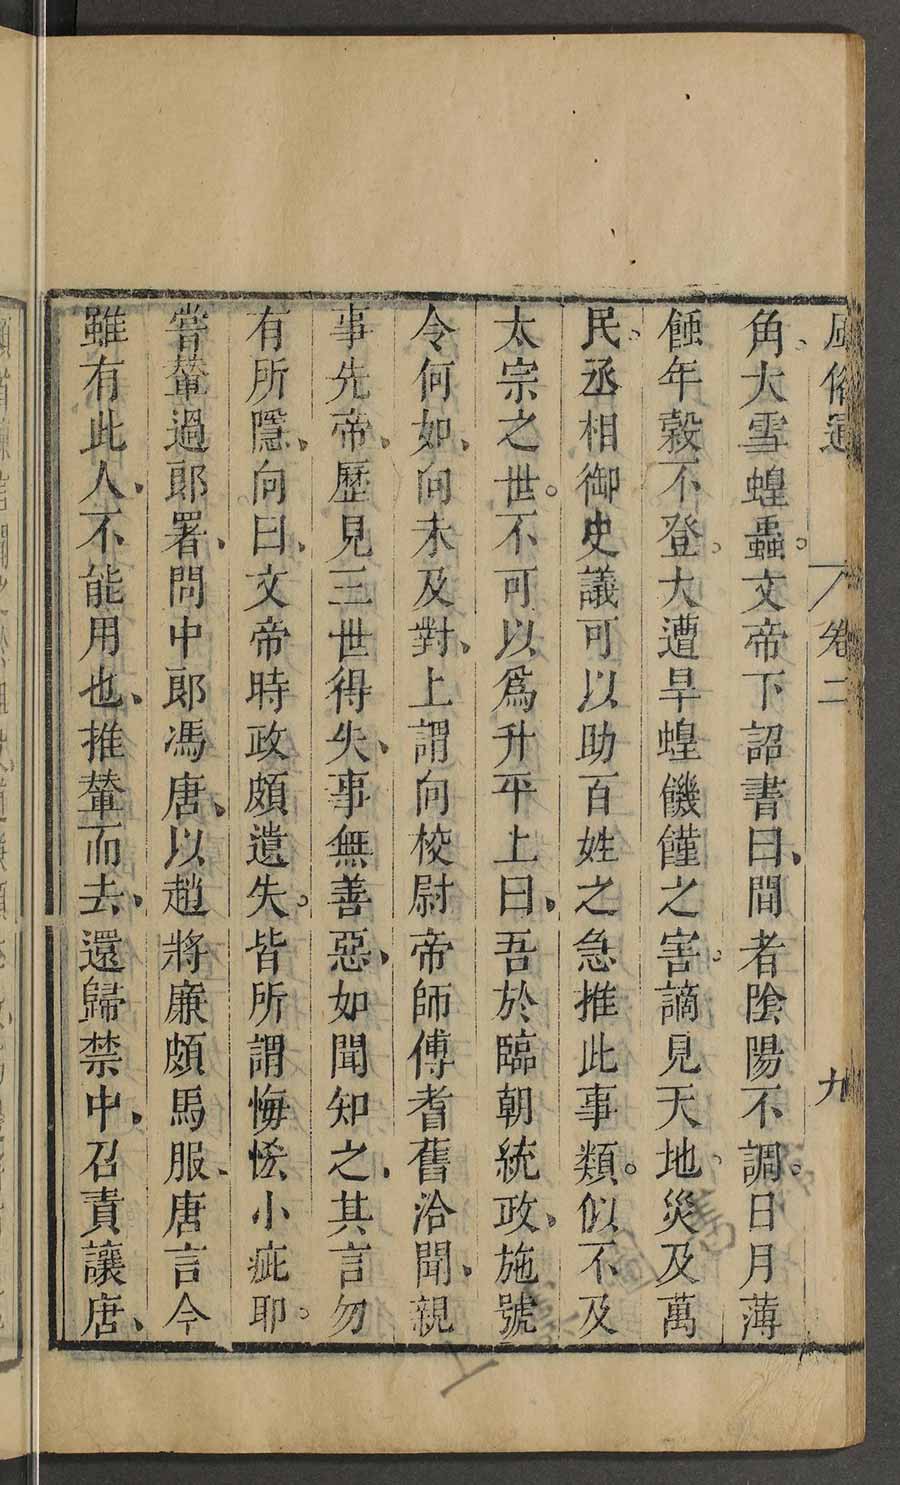 風俗通 卷二 九
角、大雪蝗蟲。文帝下詔書曰、間者陰陽不調。日月薄
蝕年穀不登。大遭旱蝗饑饉之害。謫見天地、災及萬
民。丞相御史議可以助百姓之急推此事類。似不及
太宗之世。不可以爲升平上曰、吾於臨朝統政、施號
令何如、向未及對、上謂向校尉帝師傅耆舊洽聞、親
事先帝、歷見三世得失、事無善惡、如聞知之、其言勿
有所隱、向曰、文帝時政頗遺失。皆所謂悔恡小疵耶。
嘗輦過郎署、問中郎馮唐、以趙將廉頗馬服、唐言今
雖有此人、不能用也、推輦而去、還歸禁中、召責讓唐、